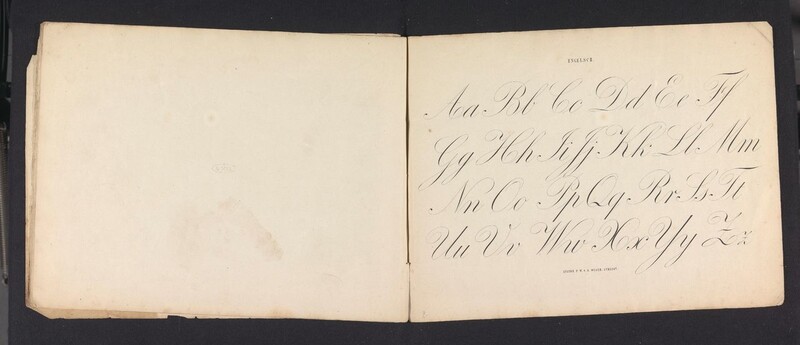 ENGELSCH.
Aa Bb Cc Dd Ee Ff
Gg Hh Ii Jj Kk Ll Mm
Nn Oo Pp Qq Rr Ss Tt
Uu Vv Ww Xx Yy Zz